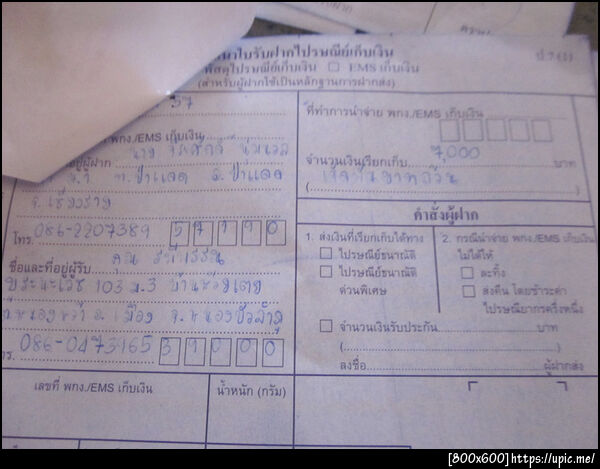 นาใบรับฝากไปรษณีย์เก็บเงิน
ป.7(1)
พัสดุไปรษณีย์เก็บเงิน □ EMS เก็บเงิน
(สำหรับผู้ฝากใช้เป็นหลักฐานการฝากส่ง)
37
พกง./EMS เก็บเงิน
อยู่ผู้ฝาก นาย
ต.ป่าแดด อ.ป่าแดด
จ.เชียงราย
โทร. 086-2207389 57190
ชื่อและที่อยู่ผู้รับ คุณ
103 ม.3
อ.เมือง จ.หนองบัวลำภู
086-0473165 39000
เลขที่ พกง./EMS เก็บเงิน
น้ำหนัก (กรัม)
ที่ทำการนำจ่าย พกง./EMS เก็บเงิน
จำนวนเงินเรียกเก็บ 7,000 บาท
(เจ็ดพันบาทถ้วน
คำสั่งผู้ฝาก
1. ส่งเงินที่เรียกเก็บได้ทาง
□ ไปรษณีย์ธนาณัติ
□ ไปรษณีย์ธนาณัติ
ด่วนพิเศษ
2. กรณีนำจ่าย พกง./EMS เก็บเงิน
ไม่ได้ให้
□ ละทิ้ง
□ ส่งคืน โดยชำระค่า
ไปรษณียากรครึ่งหนึ่ง
□ จำนวนเงินรับประกัน บาท
( )
ลงชื่อ ผู้ฝากส่ง
[800x600]https://upic.me/